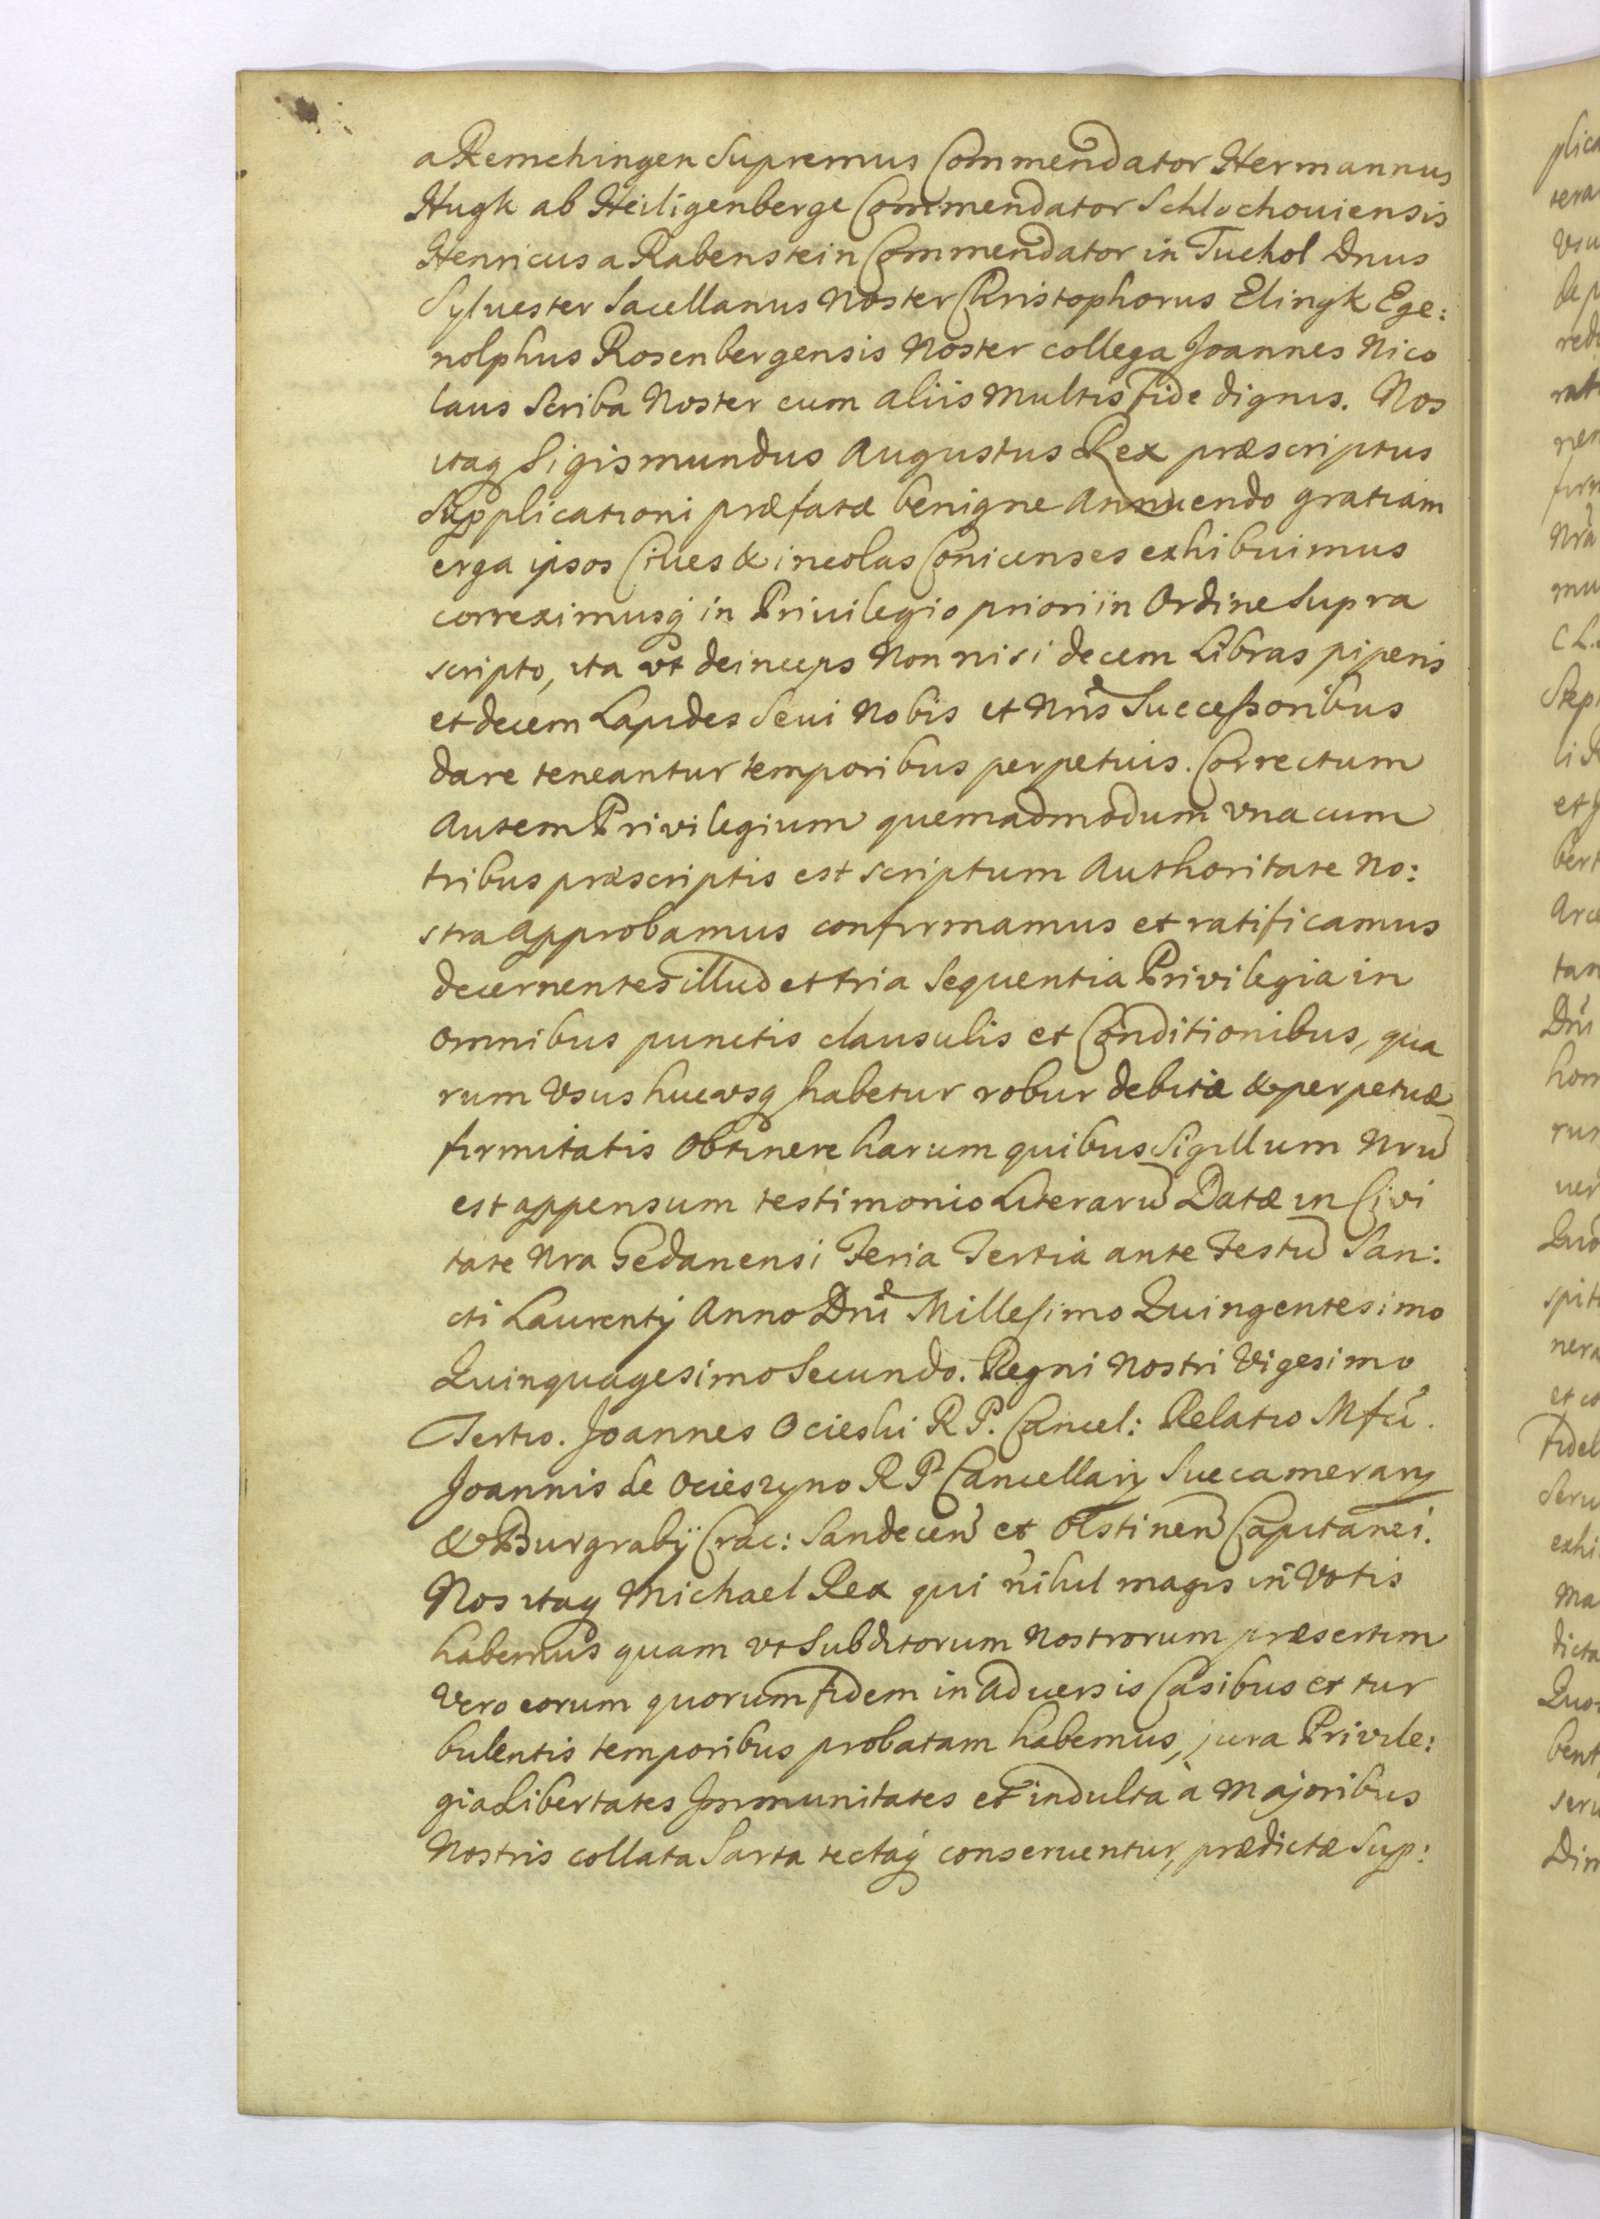 a Remchingen Supremus Commendator Hermannus
Hugk ab Heiligenberge Commendator Schlochouiensis
Henricus a Rabenstein Commendator in Tuchol Dnus
Syluester Sacellanus Noster Christophorus Elingk Ege:
nolphus Rosenbergensis Noster collega Joannes Nico
laus Scriba Noster cum aliis multis fide dignis. Nos
itaq Sigismundus Augustus Rex præscriptus
Supplicationi præfatæ benigne Annuendo gratiam
erga ipsos Ciues & incolas Conicenses exhibuimus
correximusq in Priuilegio priori in Ordine supra
scripto, ita vt deinceps Non nisi decem Libras piperis
et decem Lapides Seui Nobis et Nris Successoribus
dare teneantur temporibus perpetuis. Correctum
Autem Privilegium quemadmodum vna cum
tribus præscriptis est scriptum Authoritate No:
stra Approbamus confirmamus et ratificamus
decernentes illud et tria Sequentia Privilegia in
omnibus punctis clausulis et Conditionibus, qua
rum Vsus hucvsq habetur robur debitæ & perpetuæ
firmitatis Obtinere harum quibus Sigillum Nrũ
est appensum testimonio Literarũ Datæ in Civi
tate Nra Gedanensi Feria Tertia ante Festũ San:
cti Laurentÿ Anno Dni Millesimo Quingentesimo
Quinquagesimo Secundo. Regni Nostri Vigesimo
Tertio. Joannes Ocieski R P. Cancel: Relatio Mfci.
Joannis de Ocieszyno R P Cancellarÿ Succamerarÿ
& Burgrabÿ Crac: Sandecen̄ et Olstinen̄ Capitanei.
Nos itaq Michael Rex qui nihil magis in Votis
habemus quam vt Subditorum Nostrorum præsertim
Vero eorum quorum fidem in Aduersis Casibus et tur
bulentis temporibus probatam habemus, jura Privile:
gia Libertates Immunitates et indulta à Majoribus
Nostris collata Sarta tectaq conseruentur, prædictæ Sup: